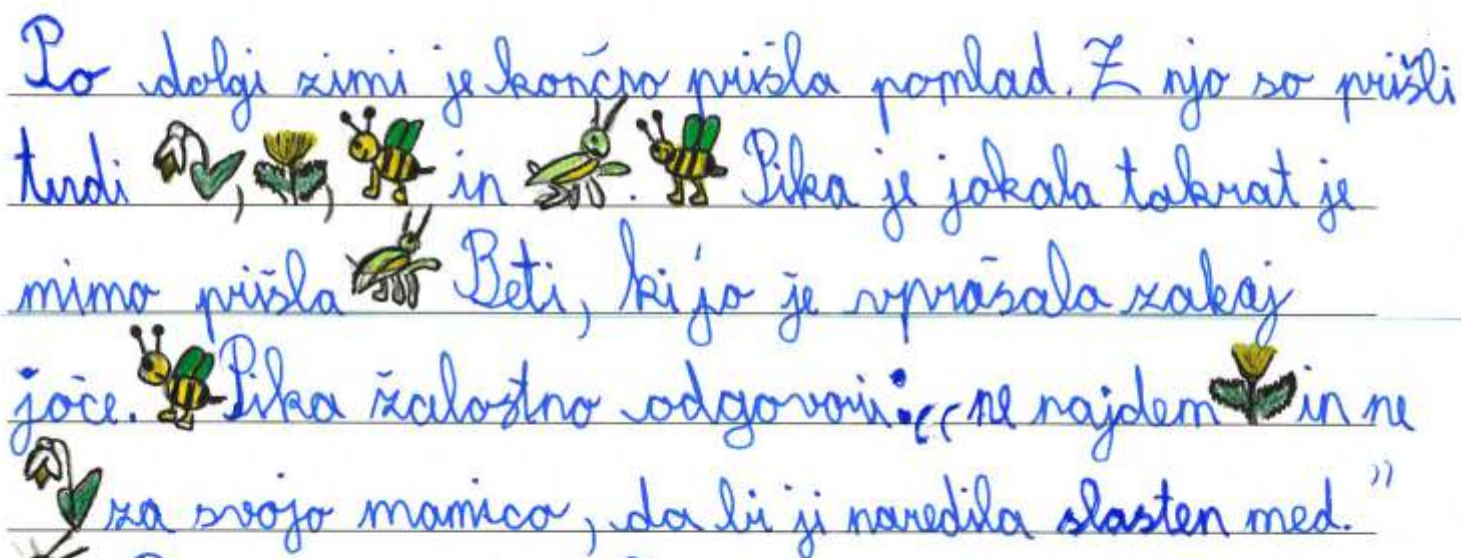 Po dolgi zimi je končno prišla pomlad. Z njo so prišli
tudi , , in . Pika je jokala takrat je
mimo prišla Beti, ki jo je vprašala zakaj
joče. Pika žalostno odgovori: „ne najdem in ne
za svojo mamico, da bi ji naredila slasten med.”